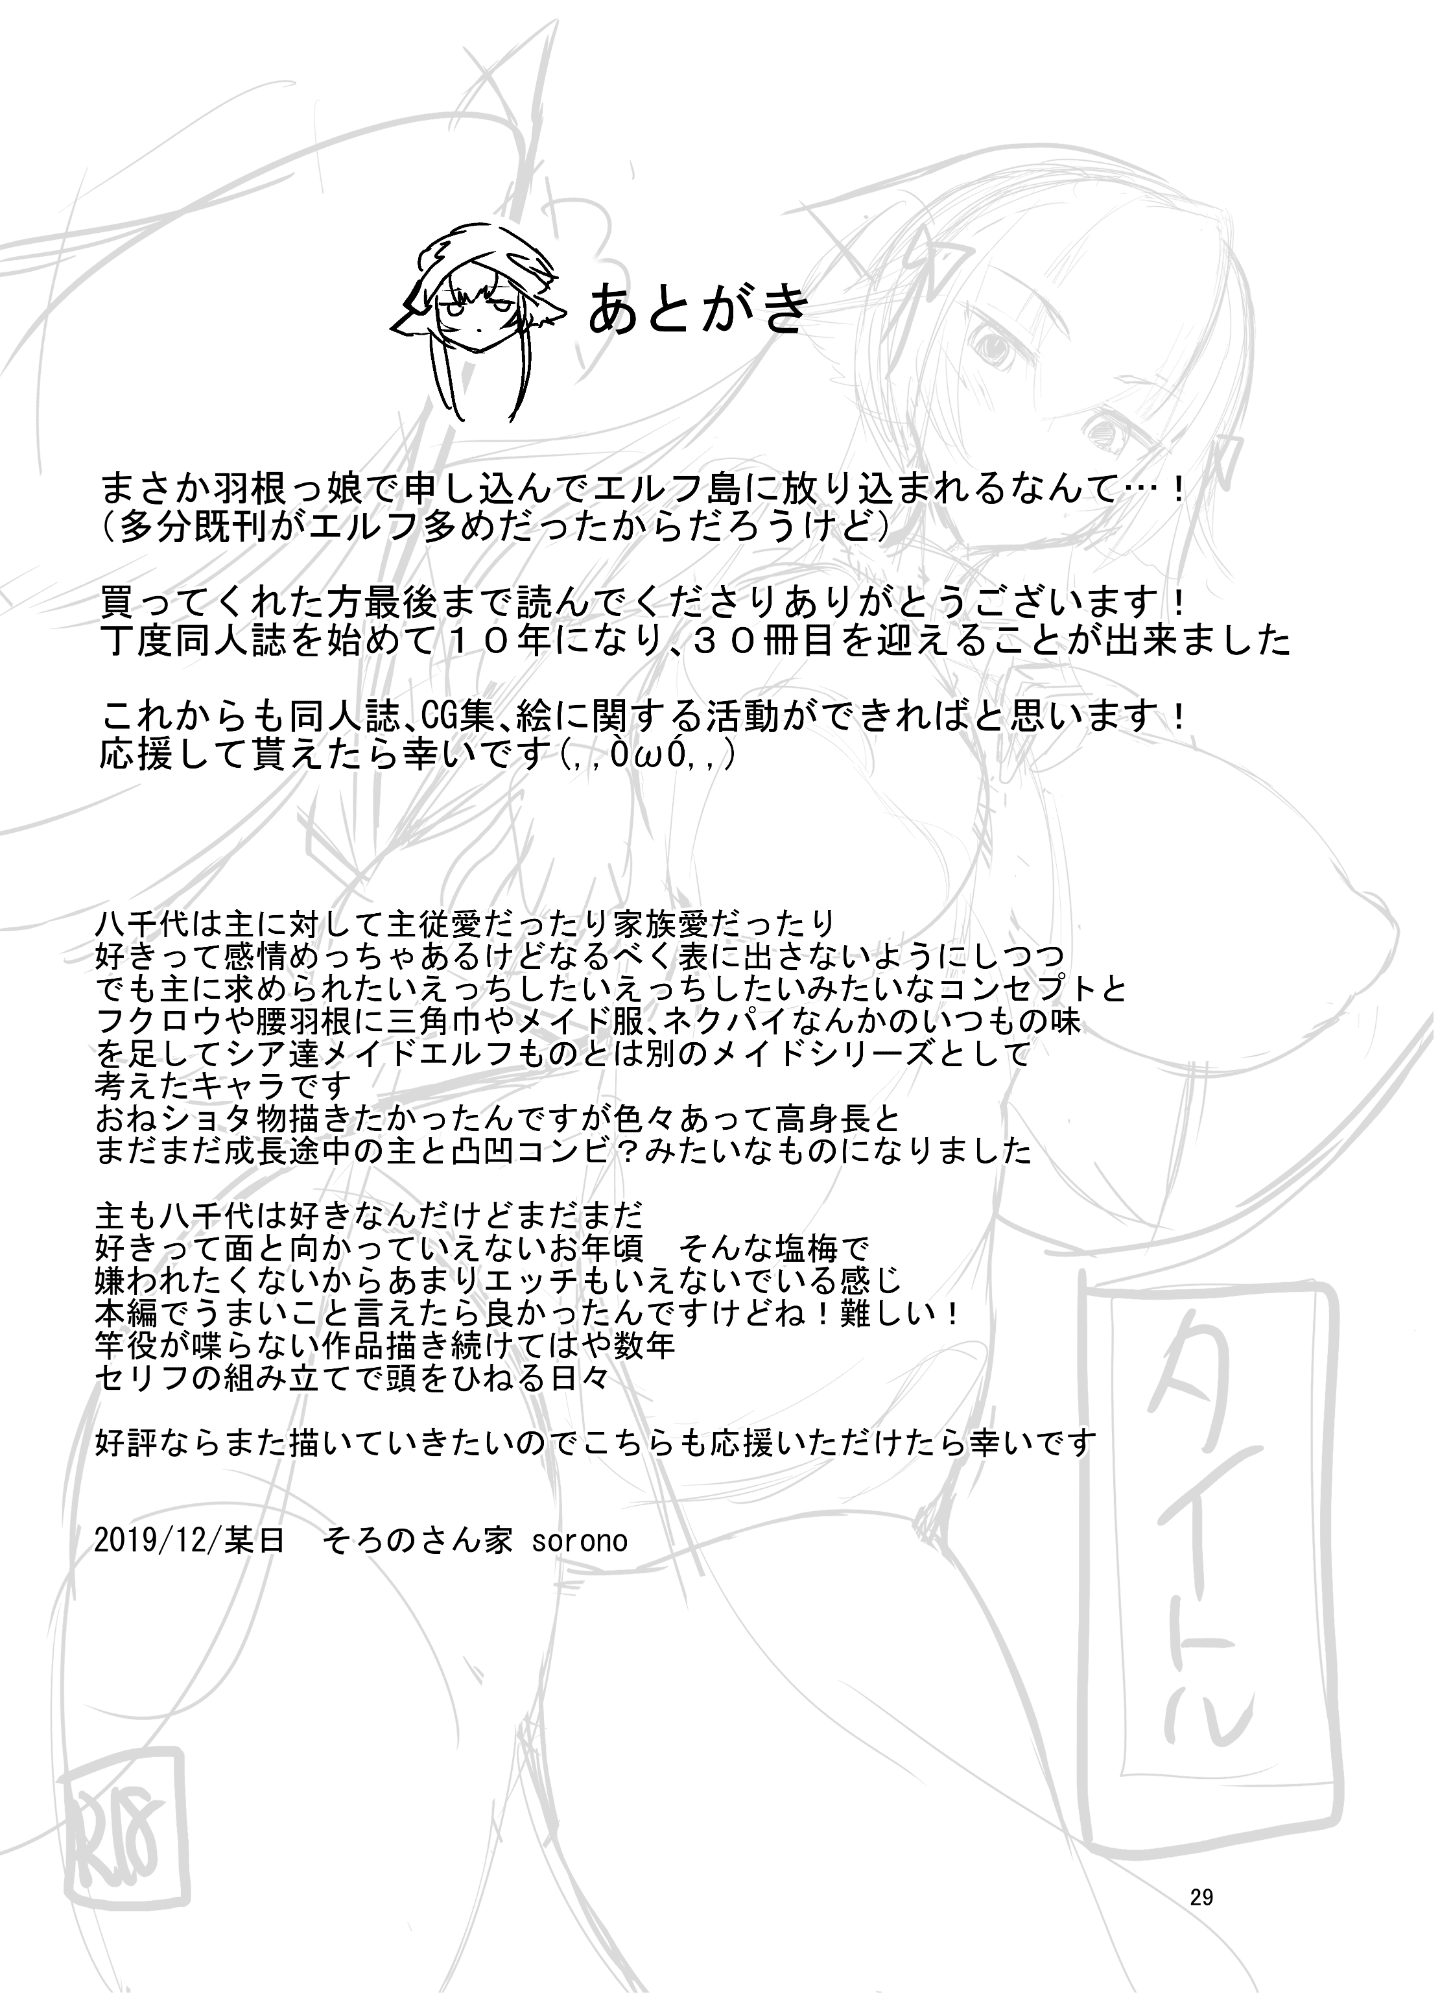 あとがき
まさか羽根っ娘で申し込んでエルフ島に放り込まれるなんて…！
（多分既刊がエルフ多めだったからだろうけど）
買ってくれた方最後まで読んでくださりありがとうございます！
丁度同人誌を始めて１０年になり、３０冊目を迎えることが出来ました
これからも同人誌、CG集、絵に関する活動ができればと思います！
応援して貰えたら幸いです(,,ÒωÓ,,)
八千代は主に対して主従愛だったり家族愛だったり
好きって感情めっちゃあるけどなるべく表に出さないようにしつつ
でも主に求められたいえっちしたいえっちしたいみたいなコンセプトと
フクロウや腰羽根に三角巾やメイド服、ネクパイなんかのいつもの味
を足してシア達メイドエルフものとは別のメイドシリーズとして
考えたキャラです
おねショタ物描きたかったんですが色々あって高身長と
まだまだ成長途中の主と凸凹コンビ？みたいなものになりました
主も八千代は好きなんだけどまだまだ
好きって面と向かっていえないお年頃　そんな塩梅で
嫌われたくないからあまりエッチもいえないでいる感じ
本編でうまいこと言えたら良かったんですけどね！難しい！
竿役が喋らない作品描き続けてはや数年
セリフの組み立てで頭をひねる日々
好評ならまた描いていきたいのでこちらも応援いただけたら幸いです
2019/12/某日　そろのさん家 sorono
タイトル
R18
29